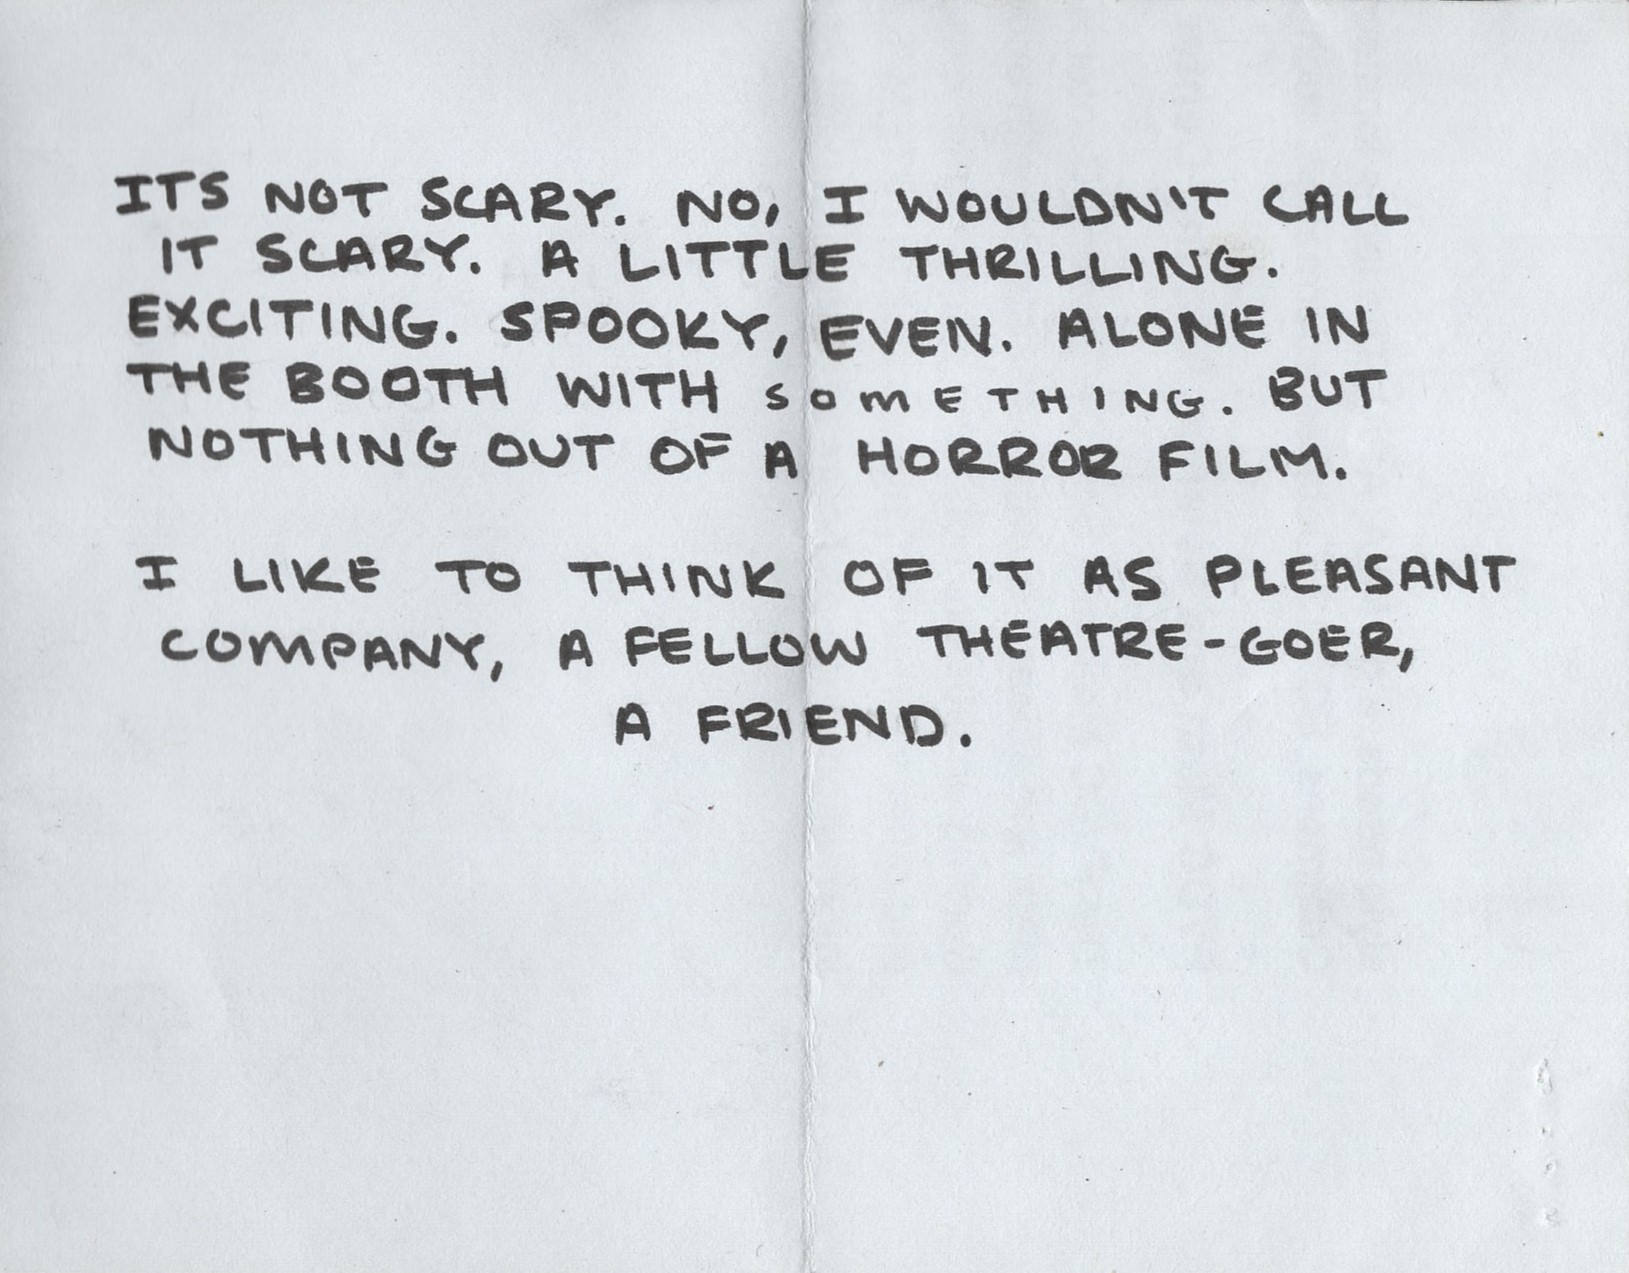 ITS NOT SCARY. NO, I WOULDN'T CALL
IT SCARY. A LITTLE THRILLING.
EXCITING. SPOOKY, EVEN. ALONE IN
THE BOOTH WITH SOMETHING. BUT
NOTHING OUT OF A HORROR FILM.
I LIKE TO THINK OF IT AS PLEASANT
COMPANY, A FELLOW THEATRE-GOER,
A FRIEND.